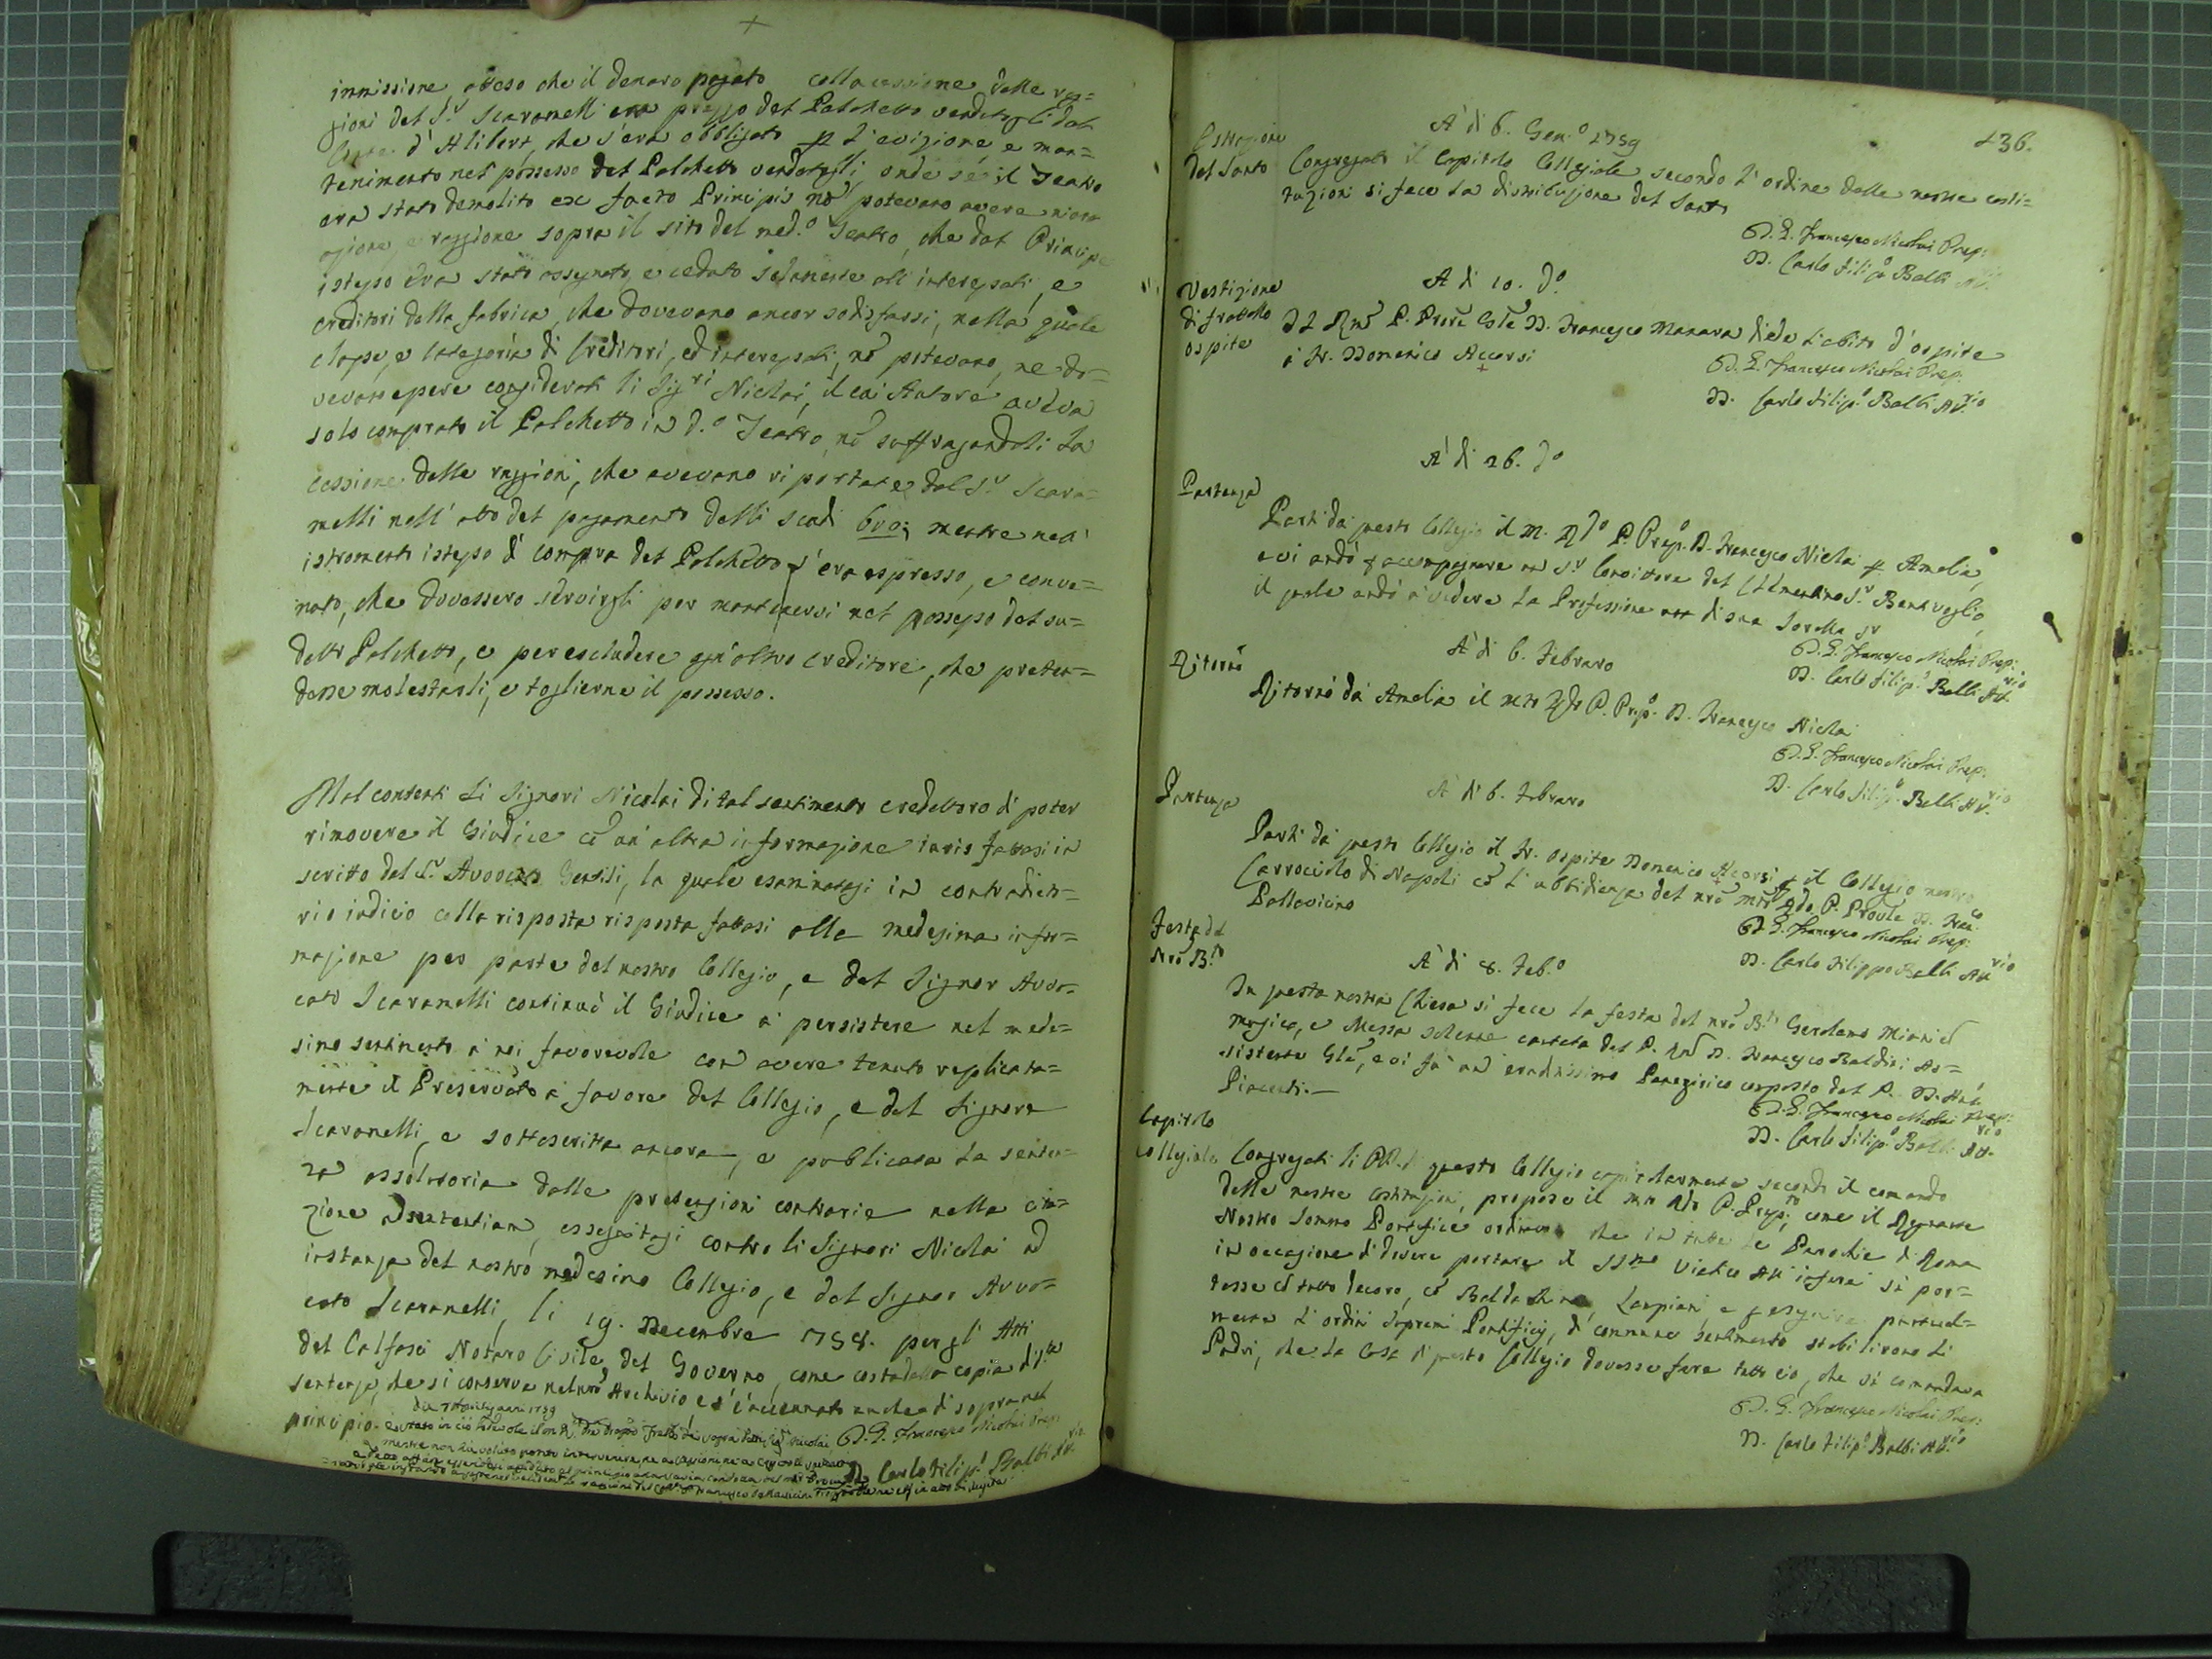 immissione, atteso che il denaro pagato colla cessione delle rag=
gioni del S.r Scaramelli era prezzo del Palchetto vendutogli dal
Conte d'Alibert, che s'era obbligato p l'evizione, e man=
tenimento nel possesso del Palchetto vendutogli, onde se il Teatro
era stato demolito ex facto Principis nō potevano avere niuna
azione, e raggione sopra il sito del med.o Teatro, che dal Principe
istesso era stato assegnato, e ceduto solamente all'interessati, e
creditori della fabrica, che dovevano ancor sodisfarsi, nella quale
classe, e categoria di Creditori, ed interessati, nō potevano, ne do=
vevano essere considerati li Sig.ri Nicolai, il cui Autore aveva
solo comprato il Palchetto in d.o Teatro, nō suffragandoli la
cessione delle raggioni, che avevano riportate dal S.r Scara=
melli nell'atto del pagamento delli scudi 600; mentre nell'
istromento istesso di compra del Palchetto s'era espresso, e conve=
nuto, che dovessero servirgli per mantenersi nel possesso del su=
detto Palchetto, e per escludere ogn'altro creditore, che preten=
desse molestarli, e toglierne il possesso.
Mal contenti li Signori Nicolai di tal sentimento credettero di poter
rimovere il Giudice cō un'altra informazione iuris fattasi in
scritto dal S.r Avvocato Gentili, la quale esaminatasi in contradict=
rio iudicio colla risposta risposta fattasi alla medesima infor=
mazione per parte del nostro Collegio, e del Signor Avvo=
cato Scaramelli continuò il Giudice à persistere nel mede=
simo sentimento à noi favorevole con avere tenuto replicata=
mente il Preservato à favore del Collegio, e del Signore
Scaramelli, e sottoscritta ancora, e publicata la senten=
za assolutoria dalle pretensioni contrarie nella cita=
zione ad sententiam, essequitasi contro li Signori Nicolai ad
instanza del nostro medesimo Collegio, e del Signor Avvo=
cato Scaramelli, li 19. Decembre 1758. per gli Atti
del Calfasi Notaro Civile del Governo, come costa dalla copia di d.ta
sentenza, che si conserva nel nrō Archivio e s'è accennato anche di sopra nel
principio.
D. G. Francesco Nicolai Prep:
D. Carlo Filip.o Balbi Att.rio
436.
A' di 6. Gen.o 1759
Estrazione
del Santo
Congregato il Capitolo Collegiale secondo l'ordine delle nostre costi=
tuzioni si fece la distribuzione del Santo
D. G. Francesco Nicolai Prep:
D. Carlo Filip.o Balbi Att.rio
A di 10. d.o
Vestizione
di fratello
ospite
Il Rmō P. Prorē Glē D. Francesco Manara diede l'abito d'ospite
à Fr. Domenico Accorsi
D. G. Francesco Nicolai Prep:
D. Carlo Filip.o Balbi Att.rio
A' di 26. d.o
Partenza
Parti da questo Collegio il M. Rdo P. Prep.o D. Francesco Nicolai p Amelia,
e vi andò p accompagnare un S.r Convittore del Clementino S.r Bentivoglio,
il quale andò à vedere la Professione di sua Sorella
D. G. Francesco Nicolai Prep:
D. Carlo Filip.o Balbi Att.rio
A' di 6. Febraro
Ritorno
Ritornò da Amelia il mto Rdo P. Prep.o D. Francesco Nicolai
D. G. Francesco Nicolai Prep:
D. Carlo Filip.o Balbi Att.rio
A' di 6. Febraro
Partenza
Parti da questo Collegio il Fr. ospite Domenico Accorsi p il Collegio nostro
Carrociolo di Napoli cō l'ubbidienza del nrō mto Rdo P. Prōule D. Fran.co
Pallavicino
D. G. Francesco Nicolai Prep:
D. Carlo Filippo Balbi Att.rio
Festa del
Nrō B.to
A' di 8. Feb.o
In questa nostra Chiesa si fece la festa del nrō B.to Gerolamo Miani cō
musica, e Messa solenne cantata dal P. Rmō D. Francesco Baldini As=
sistente Glē, e vi fù un eruditissimo Panegirico composto dal P. D.
Piacenti.
D. G. Francesco Nicolai Prep:
D. Carlo Filip.o Balbi Att.rio
Capitolo
collegiale
Congregati li PP. di questo Collegio capitolarmente secondo il comando
delle nostre costituzioni, propose il mto Rdo P. Prep.to, come il Regnante
Nostro Sommo Pontefice ordinava che in tutte le Parochie di Roma
in occasione di dovere portare il SSmo Viatico All'infermi si por=
tasse cō tutto decoro, cō Baldachino, Lampioni, e
mente l'ordini supremi Pontificij, di commune sentimento stabilirono li
Padri, che la Casa di questo Collegio dovesse fare tutto ciò, che si comandava
D. G. Francesco Nicolai Prep:
D. Carlo Filip.o Balbi Att.rio